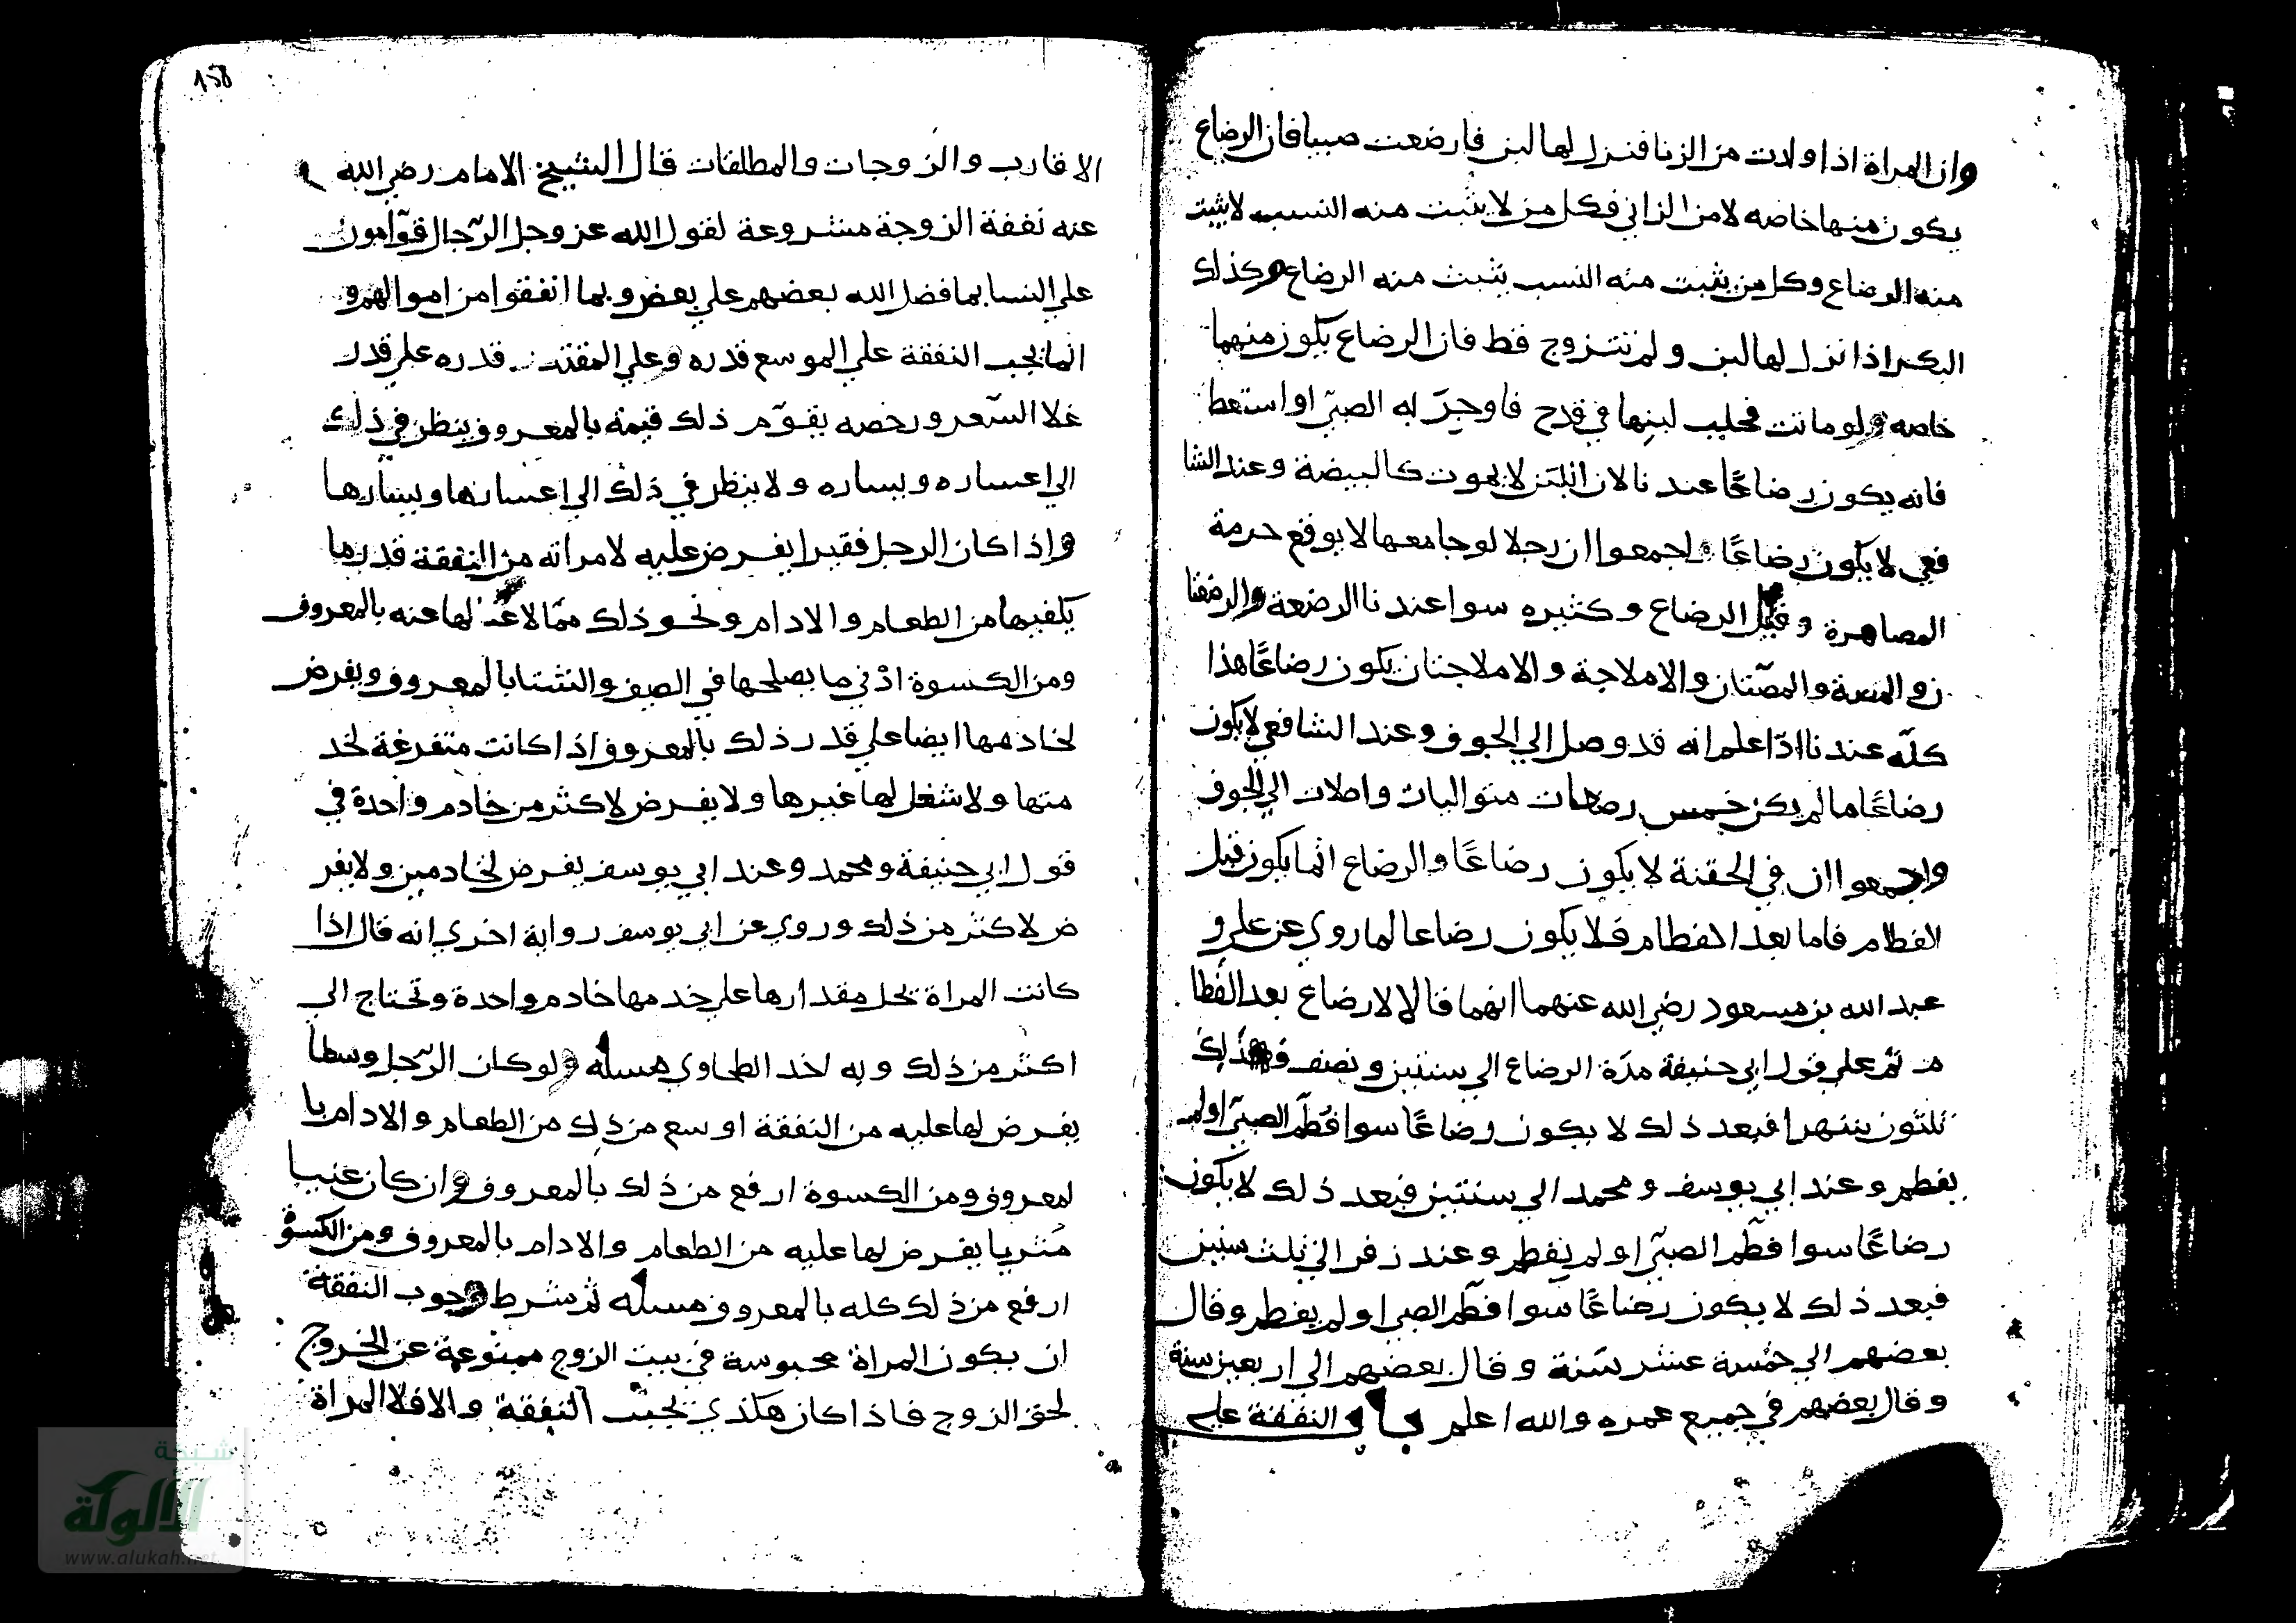 وان المراة اذا ولدت من الزنا فنزل لها لبن فارضعت صبيا فان الرضاع
يكون منها خاصه لا من الزاني فكل من لا يثبت منه النسب لا يثبت
منه الرضاع وكل من يثبت منه النسب يثبت منه الرضاع وكذلك
البكر اذا نزل لها لبن ولم تتزوج قط فان الرضاع يكون منهما
خاصه ولو ماتت فحلب لبنها في قدح فاوجر به الصبي او استعط
فانه يكون رضاعًا عندنا لان اللبن لا يموت كالبيضة وعند الشا
فعي لا يكون رضاعًا واجمعوا ان رجلا لو جامعها لا يوقع حرمة
المصاهرة وقليل الرضاع وكثيره سوا عندنا الرضعة والرضعتا
ن والمصة والمصّتان والاملاجة والاملاجتان يكون رضاعًا هذا
كلّه عندنا اذا علم انه قد وصل الي الجوف وعند الشافعي لا يكون
رضاعًا ما لم يكن خمس رضعات متواليات واصلات الي الجوف
واجمعوا ان في الحقنة لا يكون رضاعًا والرضاع انما يكون قبل
الفطام فاما بعد الفطام فلا يكون رضاعا لما روي عن علي و
عبد الله بن مسعود رضي الله عنهما انهما قالا لا رضاع بعد الفطا
م ثم علي قول ابي حنيفة مدّة الرضاع الي سنتين ونصف فذلك
ثلثون شهرا فبعد ذلك لا يكون رضاعًا سوا فطم الصبي او لم
يفطم وعند ابي يوسف ومحمد الي سنتين فبعد ذلك لا يكون
رضاعًا سوا فطم الصبي او لم يفطم وعند زفر الي ثلث سنين
فبعد ذلك لا يكون رضاعًا سوا فطم الصبي او لم يفطم وقال
بعضهم الي خمسة عشر سنة وقال بعضهم الي اربعين سنة
وقال بعضهم في جميع عمره والله اعلم باب النفقة علي
158
الاقارب والزوجات والمطلقات قال الشيخ الامام رضي الله
عنه نفقة الزوجة مشروعة لقول الله عز وجل الرّجال قوّامون
علي النسا بما فضل الله بعضهم علي بعض وبما انفقوا من اموالهم و
انما يجب النفقة علي الموسع قدره وعلي المقتر قدره علي قدر
غلا السّعر ورخصه يقوّم ذلك قيمة بالمعروف ينظر في ذلك
الي اعساره ويساره ولا ينظر في ذلك الي اعسارها ويسارها
واذا كان الرجل فقيرا يفرض عليه لامراته من النفقة قدر ما
يكفيها من الطعام والادام ونحو ذلك ممّا لا غنا لها عنه بالمعروف
ومن الكسوة ادني ما يصلحها في الصيف والشتا بالمعروف ويفرض
لخادمها ايضا علي قدر ذلك بالمعروف اذا كانت متفرغة لخد
متها ولا شغل لها غيرها ولا يفرض لاكثر من خادم واحدة في
قول ابي حنيفة ومحمد وعند ابي يوسف يفرض لخادمين ولا يفر
ض لاكثر من ذلك وروي عن ابي يوسف رواية اخري انه قال اذا
كانت المراة يحل مقدارها علي خدمها خادم واحدة وتحتاج الي
اكثر من ذلك وبه اخد الطحاوي مسله ولو كان الرّجل وسطا
يفرض لها عليه من النفقة اوسع من ذلك من الطعام والادام با
لمعروف ومن الكسوة ارفع من ذلك بالمعروف وان كان غنيا
مثريا يفرض لها عليه من الطعام والادام بالمعروف ومن الكسوة
ارفع من ذلك كله بالمعروف مسله ثم شرط وجوب النفقة
ان يكون المراة محبوسة في بيت الزوج ممنوعة عن الخروج
لحق الزوج فاذا كان هكذي يجب النفقة والا فلا المراة
شبكة
الالوكة
www.alukah.net